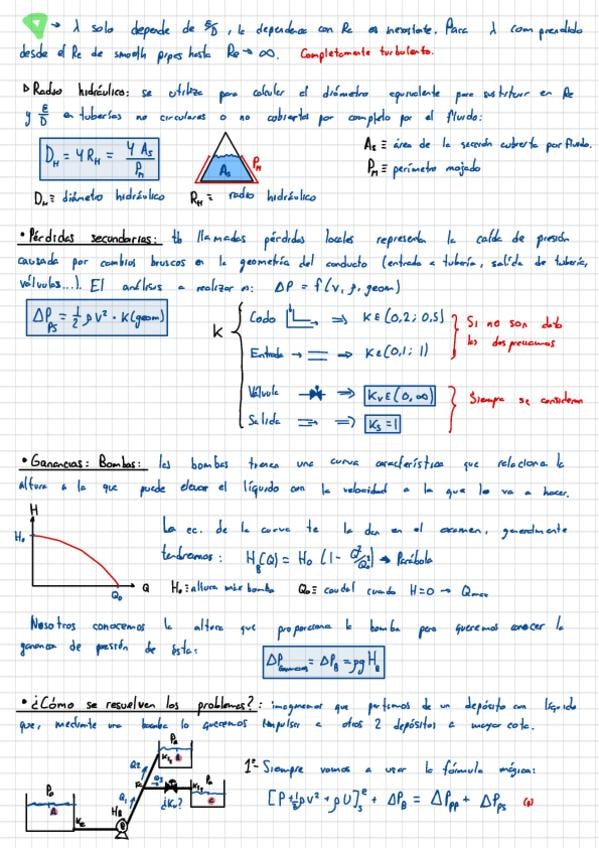 → λ solo depende de ε/D, la dependencia con Re es inexistente. Para λ comprendido
desde el Re de smooth pipes hasta Re → ∞. Completamente turbulento.
▷ Radio hidráulico: se utiliza para calcular el diámetro equivalente para sustituir en Re
y ε/D en tuberías no circulares o no cubierta por completo por el fluido:
D_H = 4 R_H = 4 A_s / P_M
A_s
P_M
A_s ≡ área de la sección cubierta por fluido.
P_M ≡ perímetro mojado
D_H ≡ diámetro hidráulico R_H ≡ radio hidráulico
• Pérdidas secundarias: tb llamadas pérdidas locales representa la caída de presión
causada por cambios bruscos en la geometría del conducto (entrada a tubería, salida de tubería,
válvulas...). El análisis a realizar es: ΔP = f(v, ρ, geom)
ΔP_PS = 1/2 ρ v² · K(geom)
K
Codo ⇒ K∈(0,2; 0,5)
Entrada → K∈(0,1; 1)
Si no son dato
las despreciamos
Válvula ⇒ K_v∈(0,∞)
Salida ⇒ K_s=1
Siempre se consideran
• Ganancias: Bombas: las bombas tienen una curva característica que relaciona la
altura a la que puede elevar el líquido con la velocidad a la que lo va a hacer.
H
H₀
Q₀
Q
La ec. de la curva te la dan en el examen, generalmente
tendremos: H_B(Q) = H₀ (1 - Q²/Q₀²) → Parábola
H₀ ≡ altura máx bomba Q₀ ≡ caudal cuando H=0 → Qmax
Nosotros conocemos la altura que proporciona la bomba pero queremos conocer la
ganancia de presión de ésta:
ΔP_ganancias = ΔP_B = ρg H_B
• ¿Cómo se resuelven los problemas?: imaginemos que partimos de un depósito con líquido
que, mediante una bomba lo queremos impulsar a otros 2 depósitos a mayor cota.
Pa
A
Ke
H_B
B
Q₁
Q₂
Q₃
¿Kv?
Pa
Pa
C
1º- Siempre vamos a usar la fórmula mágica:
[P + 1/2 ρv² + ρU]ₛᵉ + ΔP_B = ΔP_PP + ΔP_PS